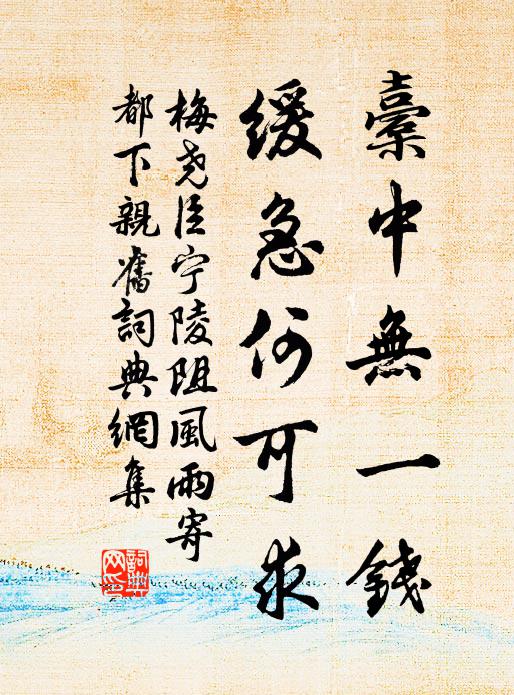 橐中無一錢
緩急何可求
梅尧臣宁陵阻風雨寄
都下親舊詞典網集